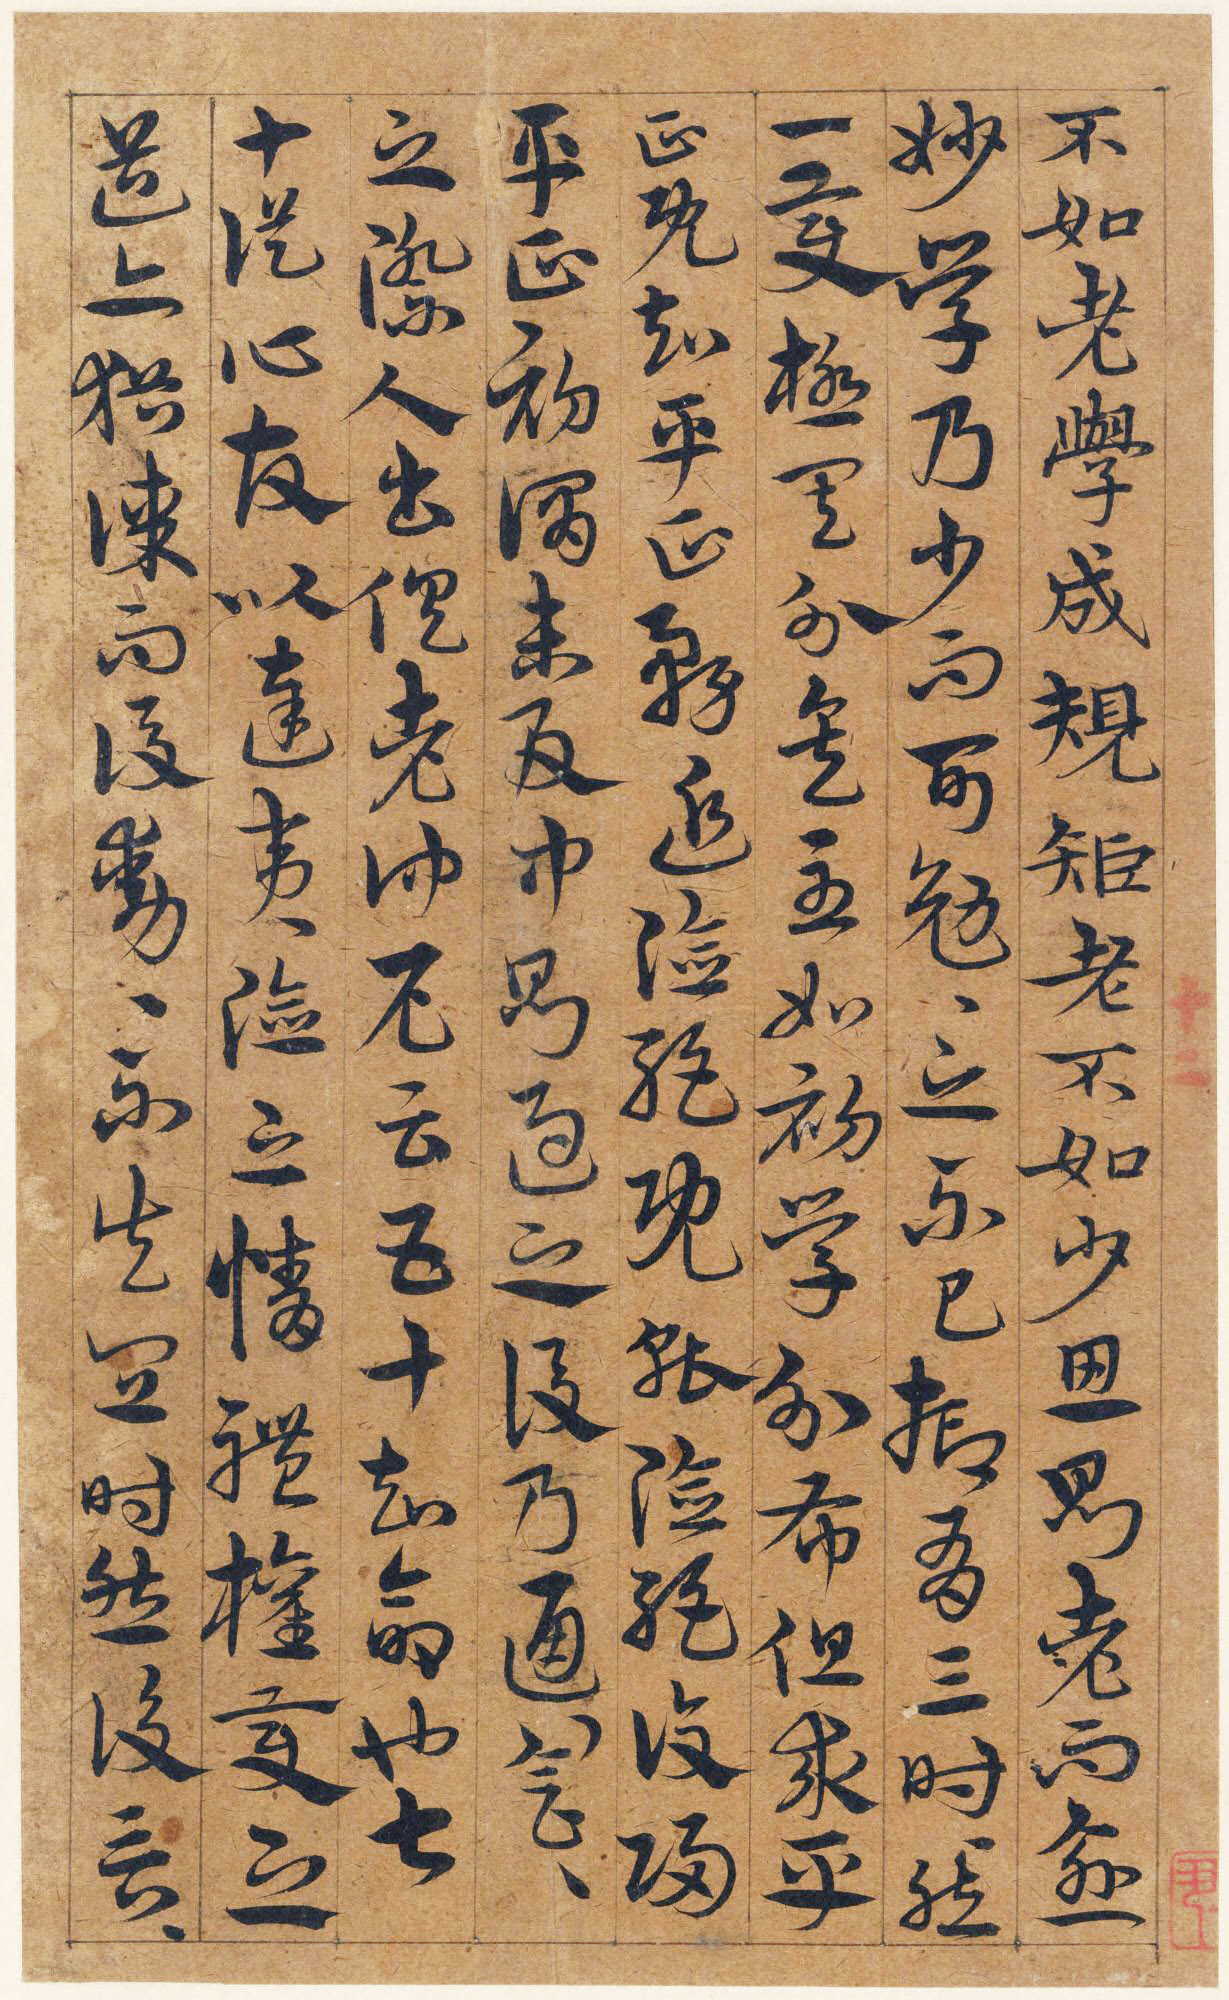 不如老學成規矩老不如少思則老而逾
妙學乃少而可勉〻之不已抑有三時然
一變極其分矣至如初學分布但求平
正既知平正務追險絕既能險絕復歸
平正初謂未及中則過之後乃通會〻
之際人書俱老仲尼云五十知命也七
十從心故以達夷險之情體權變之
道亦猶謀而後動〻不失宜時然後言〻
十二